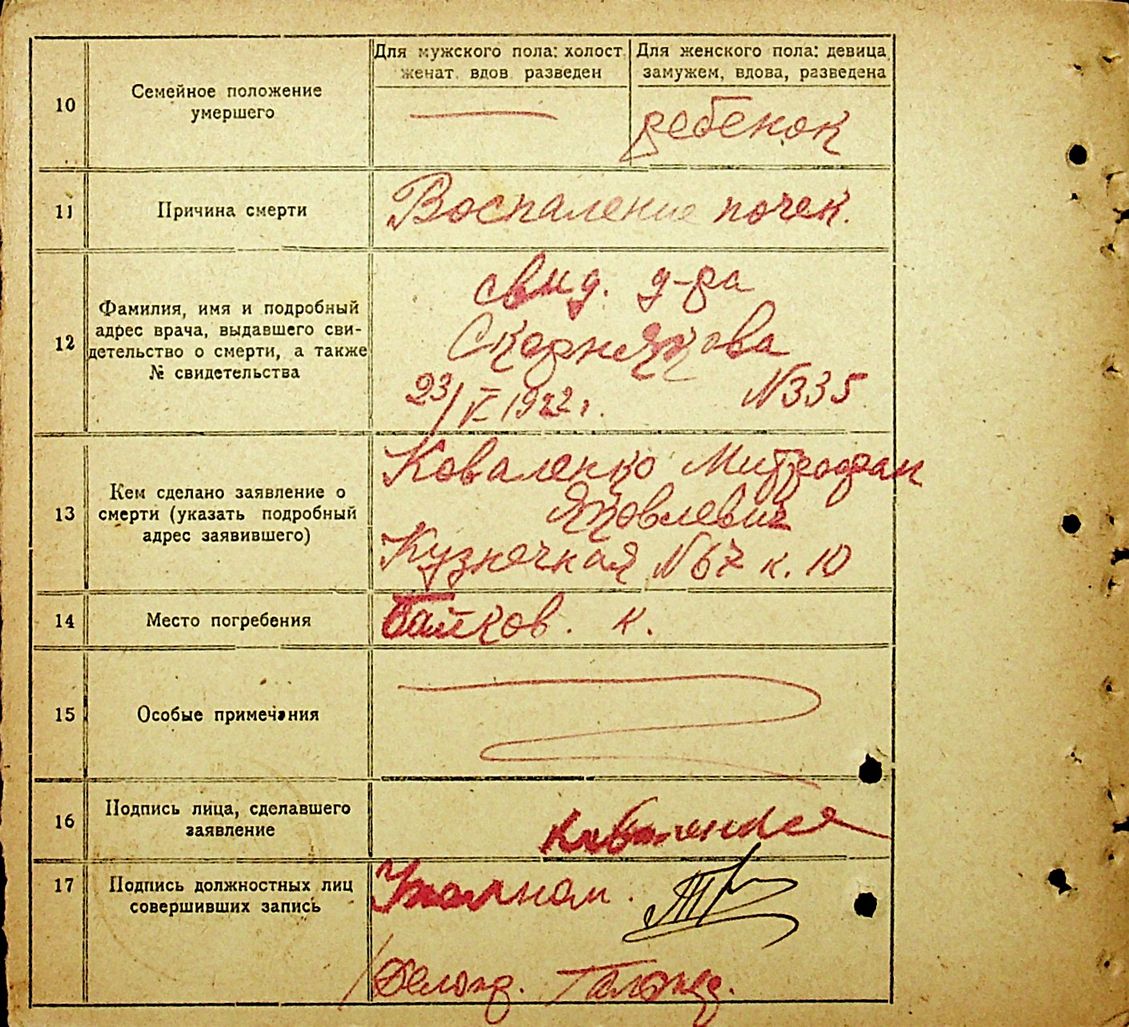 10
Семейное положение
умершего
Для мужского пола: холост
женат вдов разведен
Для женского пола: девица
замужем, вдова, разведена
ребенок
11
Причина смерти
Воспаление почек.
12
Фамилия, имя и подробный
адрес врача, выдавшего сви-
детельство о смерти, а также
№ свидетельства
свид. д-ра
Скорнякова
23/V 1922 г. №335
13
Кем сделано заявление о
смерти (указать подробный
адрес заявившего)
Коваленко Митрофан
Яковлевич
Кузнечная №67 к. 10
14
Место погребения
Байков. к.
15
Особые примечания
16
Подпись лица, сделавшего
заявление
17
Подпись должностных лиц
совершивших запись
Уполном.
Делопр.